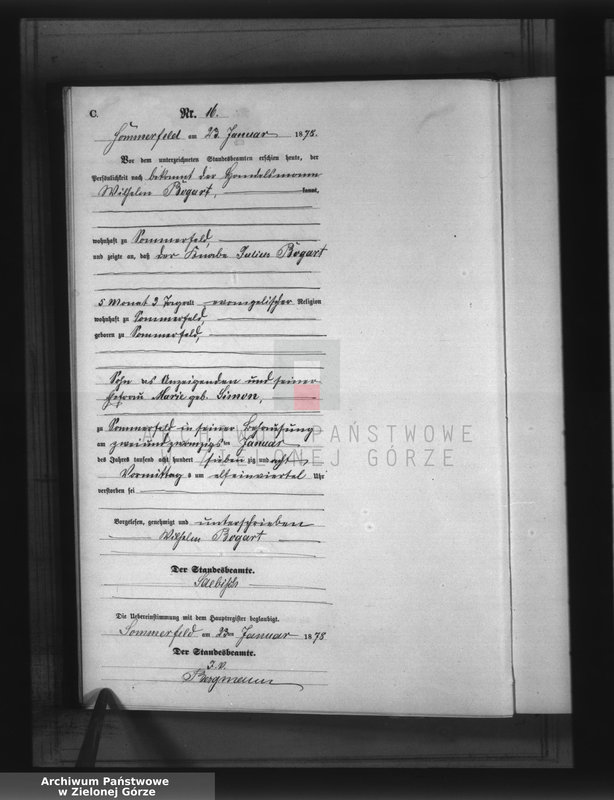 C.
Nr. 16.
Sommerfeld am 23. Januar 1878.
Vor dem unterzeichneten Standesbeamten erschien heute, der
Persönlichkeit nach bekannt der Handelsmann
Wilhelm Bogart, kannt,
wohnhaft zu Sommerfeld,
und zeigte an, daß der Knabe Julius Bogart
5 Monat 3 Tage alt evangelischer Religion
wohnhaft zu Sommerfeld,
geboren zu Sommerfeld,
Sohn des Anzeigenden und seiner
Ehefrau Marie geb. Simon,
zu Sommerfeld in seiner Behausung
am zweiundzwanzigsten Januar
des Jahres tausend acht hundert sieben zig und acht
Vormittag s um elfeinviertel Uhr
verstorben sei
Vorgelesen, genehmigt und unterschrieben
Wilhelm Bogart
Der Standesbeamte.
Die Uebereinstimmung mit dem Hauptregister beglaubigt.
Sommerfeld am 23ten Januar 1878
Der Standesbeamte.
I. V.
Bergmann
PAŃSTWOWE
ZIELONEJ GÓRZE
Archiwum Państwowe
w Zielonej Górze